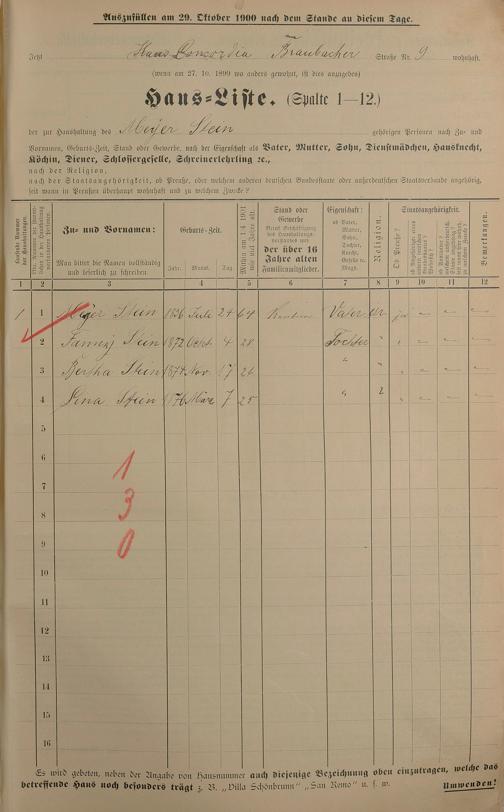 Auszufüllen am 29. Oktober 1900 nach dem Stande an diesem Tage.
Jetzt Haus Concordia Braubacher Straße Nr. 9 wohnhaft.
(wenn am 27. 10. 1899 wo anders gewohnt, ist dies anzugeben)
Haus-Liste. (Spalte 1—12.)
der zur Haushaltung des Meijer Stein gehörigen Personen nach Zu- und
Vornamen, Geburts-Zeit, Stand oder Gewerbe, nach der Eigenschaft als Vater, Mutter, Sohn, Dienstmädchen, Hausknecht,
Köchin, Diener, Schlossergeselle, Schreinerlehrling ec.,
nach der Religion,
nach der Staatsangehörigkeit, ob Preuße, oder welchem anderen deutschen Bundesstaate oder außerdeutschen Staatsverbande angehörig,
seit wann in Preußen überhaupt wohnhaft und zu welchem Zwecke?
Zu- und Vornamen:
Man bittet die Namen vollständig und leserlich zu schreiben.
Geburts-Zeit.
Jahr. Monat. Tag.
Mithin am 1/4 1901 wie viel Jahre alt.
Stand oder Gewerbe
der über 16 Jahre alten Familienmitglieder.
Eigenschaft:
ob Vater, Mutter, Sohn, Tochter, Knecht, Geselle u. Magd.
Religion.
Staatsangehörigkeit.
Ob Preuße?
Bemerkungen.
1 2 3 4 5 6 7 8 9 10 11 12
1 1 Meijer Stein 1836 Juli 24 64 Vater isr ja
2 Fanny Stein 1872 4 28 Tochter "
3 Bertha Stein 1874 Nov. 17 26 "
4 Lina Stein 1876 März 7 25 "
5
6
1
7
3
8
0
9
10
11
12
13
14
15
16
Es wird gebeten, neben der Angabe von Hausnummer auch diejenige Bezeichnung oben einzutragen, welche das
betreffende Haus noch besonders trägt z. B. „Villa Schönbrunn" „San Remo" u. s. w.
Umwenden!